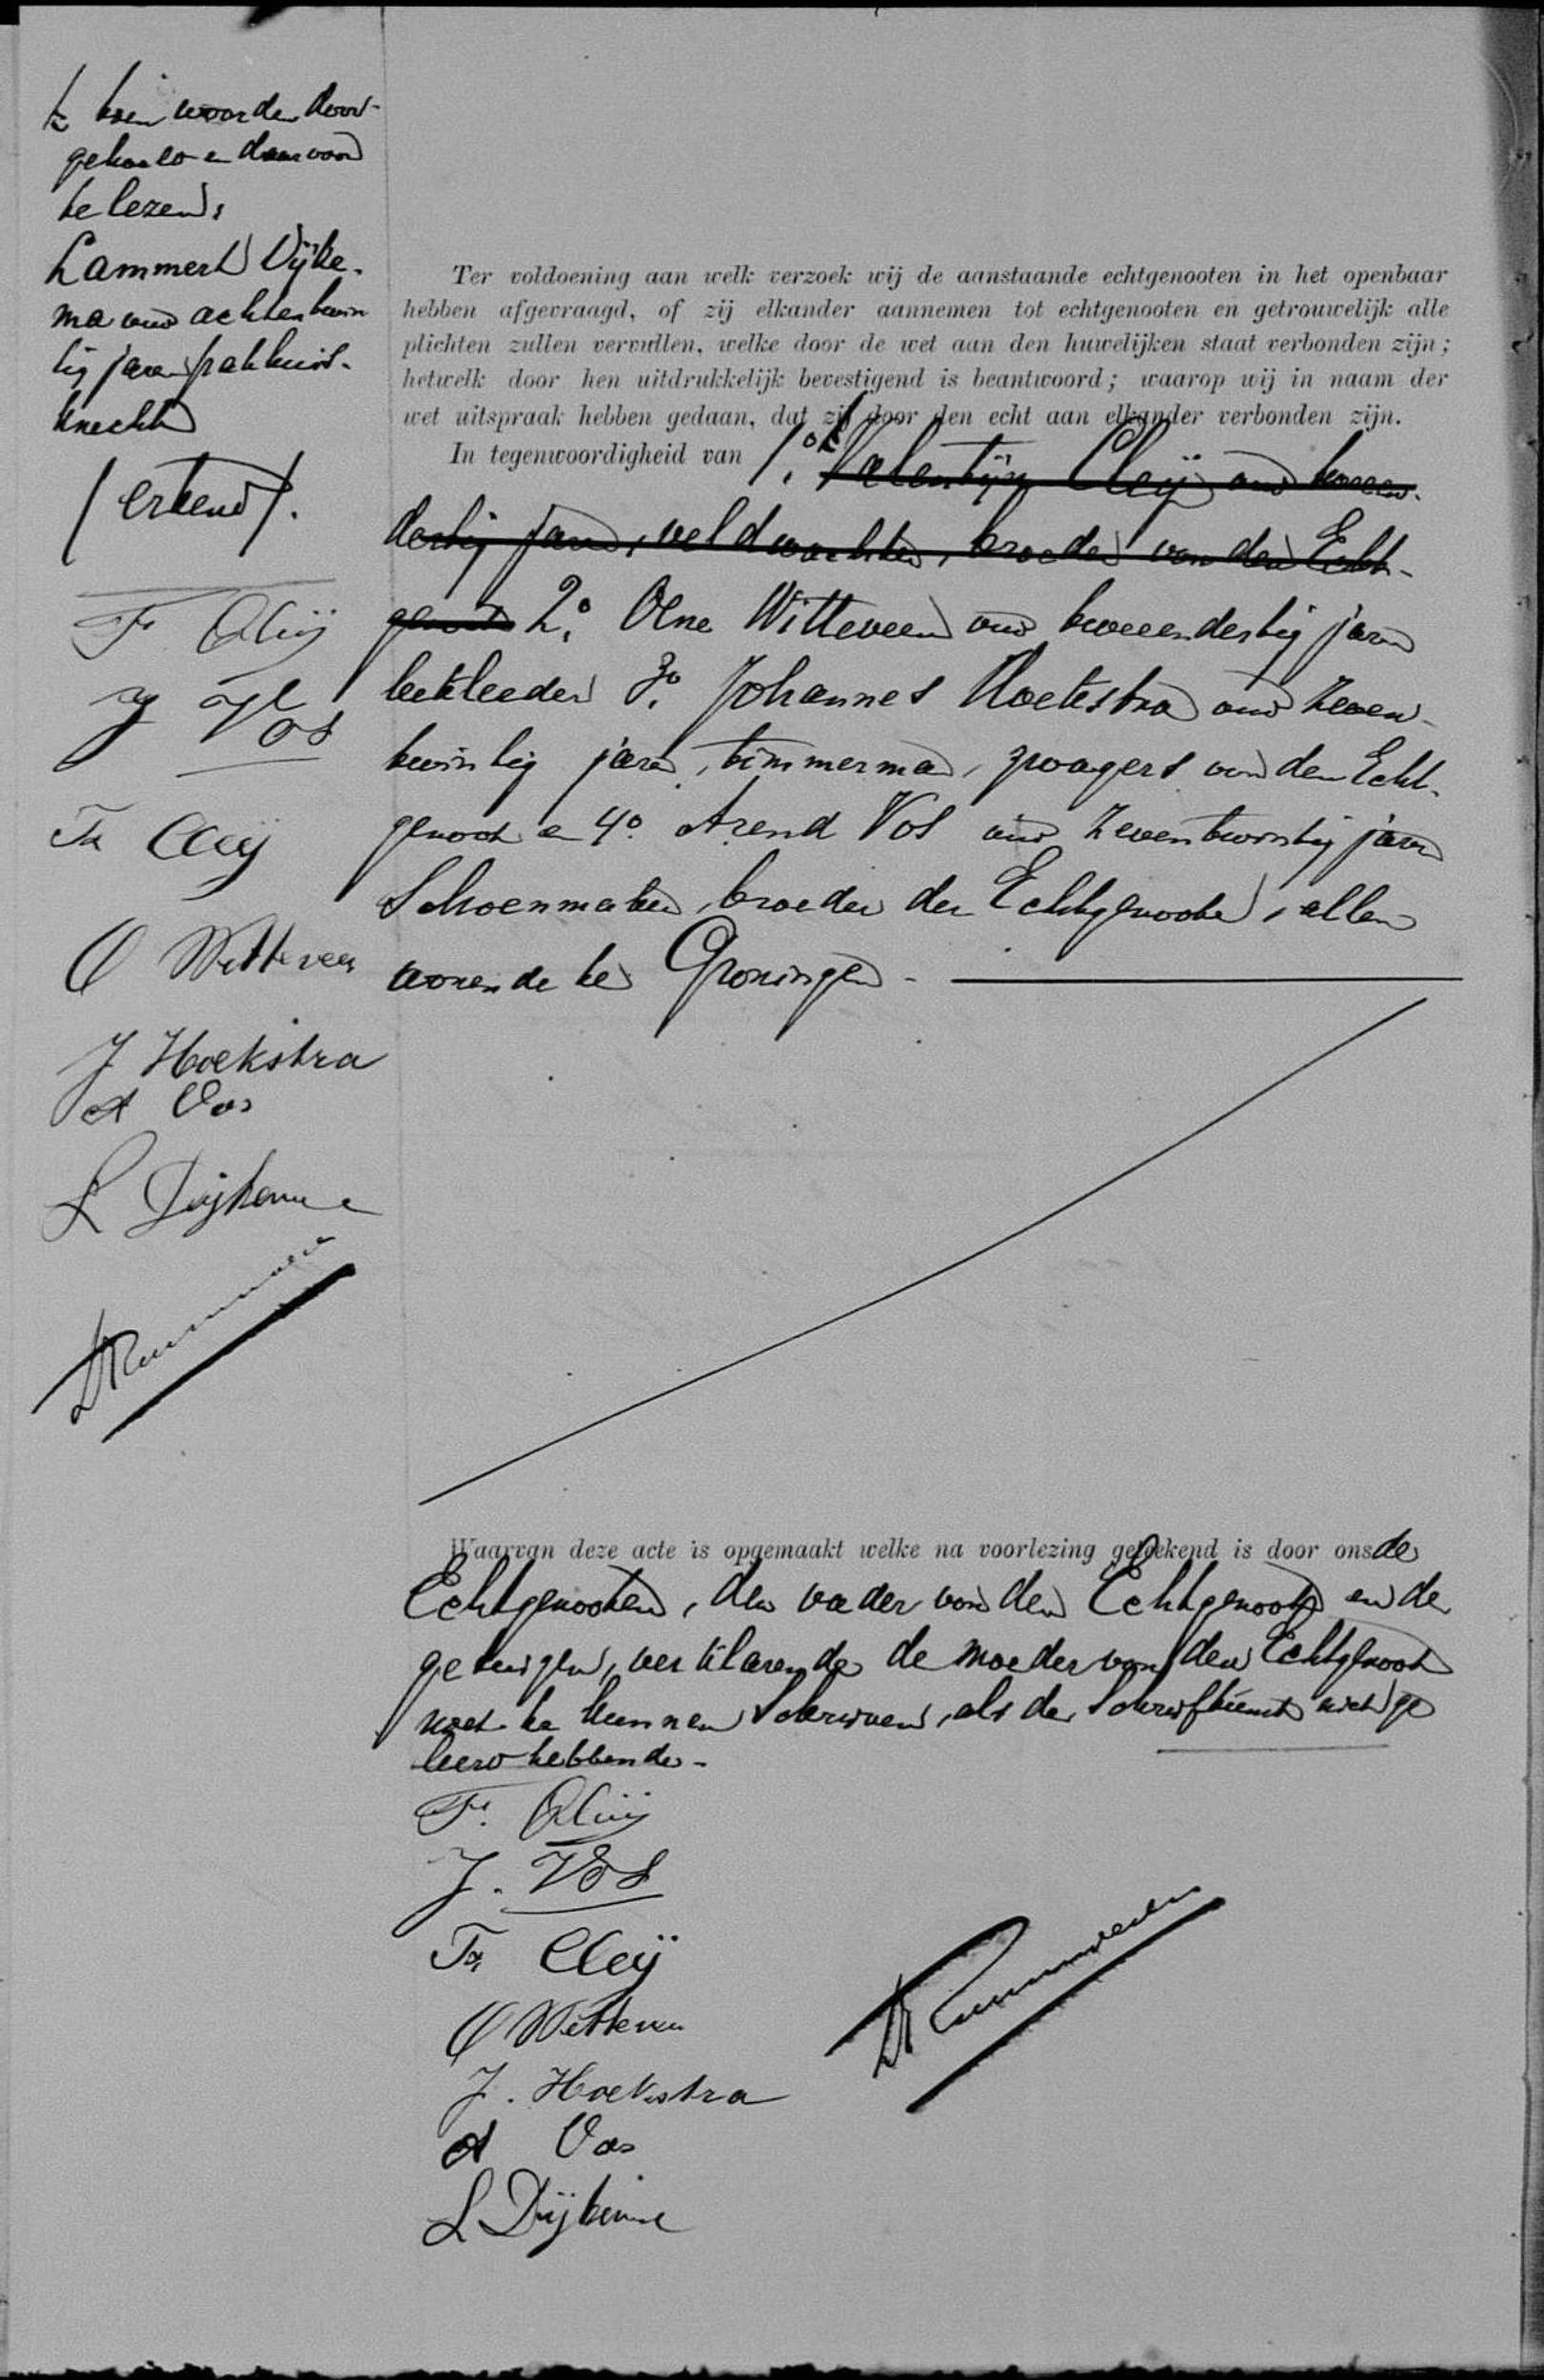 tien woorden door-
gehaald en daarvoor
te lezen:
Lammert Dijke-
ma oud achtentwin
tig jaren pakhuis-
knecht
(erkend).
F. Cleij
J Vos
Fr Cleij
O Witteveen
J Hoekstra
A Vos
L Dijkema
Ter voldoening aan welk verzoek wij de aanstaande echtgenooten in het openbaar
hebben afgevraagd, of zij elkander aannemen tot echtgenooten en getrouwelijk alle
plichten zullen vervullen, welke door de wet aan den huwelijken staat verbonden zijn;
hetwelk door hen uitdrukkelijk bevestigend is beantwoord; waarop wij in naam der
wet uitspraak hebben gedaan, dat zij door den echt aan elkander verbonden zijn.
In tegenwoordigheid van 1.° Valentijn Cleij oud tweeen-
dertig jaren, veldwachter, broeder van den Echt-
genoot 2.° Oene Witteveen oud tweeendertig jaren
3.° Johannes Hoekstra oud zeven-
twintig jaren, timmerman, zwagers van den Echt-
genoot en 4.° Arend Vos oud zeventwintig jaren
Schoenmaker, broeder der Echtgenoote, allen
wonende te Groningen -
Waarvan deze acte is opgemaakt welke na voorlezing geteekend is door ons de
Echtgenooten, den vader van den Echtgenoot en de
getuigen, verklarende de moeder van den Echtgenoot
niet te kunnen schrijven, als de schrijfkunst niet ge
leerd hebbende -
F. Cleij
J. Vos
Fr. Cleij
O Witteveen
J. Hoekstra
A Vos
L Dijkema